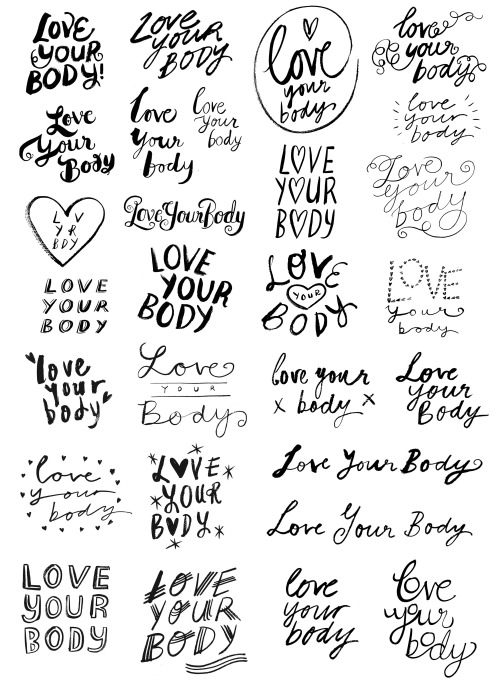 LOVE
YOUR
BODY!
LOVE
YOUR
BODY
love
your
body
love
your
body
Love
Your
Body
love
your
body
love
your
body
love
your
body
L V
Y R
B D Y
LoveYourBody
LOVE
YOUR
BODY
Love
your
body
LOVE
YOUR
BODY
LOVE
YOUR
BODY
LOVE
YOUR
BODY
LOVE
your
body
"love
your
body"
Love
YOUR
Body
love your
x body x
Love
your
Body
love
your
body
L♥VE
YOUR
B♥DY
Love Your Body
Love Your Body
LOVE
YOUR
BODY
LOVE
YOUR
BODY
love
your
body
love
your
body